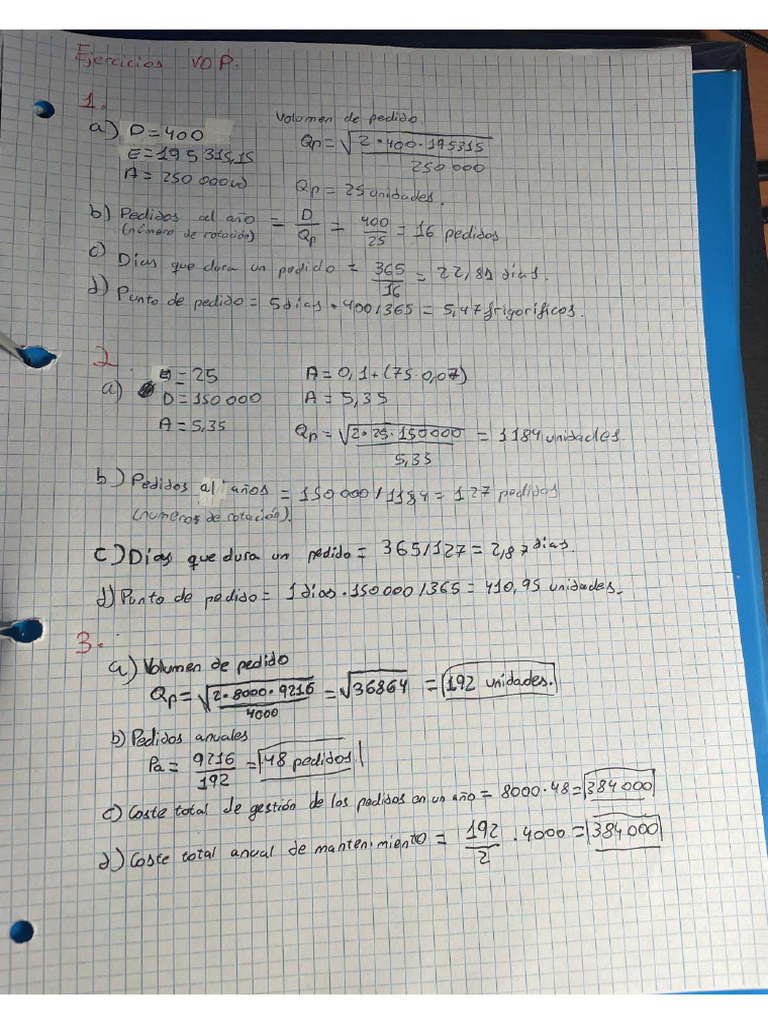 Ejercicios VOP.
1.
a) D=400
E=195315,15
A=250000
Volumen de pedido.
Qp=√2·400·195315/250000
Qp=25 unidades.
b) Pedidos al año = D/Qp = 400/25 = 16 pedidos
(número de rotación)
c) Días que dura un pedido = 365/16 = 22,81 días.
d) Punto de pedido = 5 días · 400/365 = 5,47 frigoríficos.
2
a) = 25
D=150000
A=5,35
A=0,1+(75·0,07)
A=5,35
Qp=√2·25·150000/5,35 = 1184 unidades.
b) Pedidos al años = 150000/1184 = 127 pedidos
(numeros de rotación).
c) Días que dura un pedido = 365/127 = 2,87 días.
d) Punto de pedido = 1 días · 150000/365 = 410,95 unidades.
3.
a) Volumen de pedido
Qp=√2·8000·9216/4000 = √36864 = 192 unidades.
b) Pedidos anuales
Pa = 9216/192 = 48 pedidos.
c) Coste total de gestión de los pedidos en un año = 8000·48 = 384000
d) Coste total anual de mantenimiento = 192/2 · 4000 = 384000